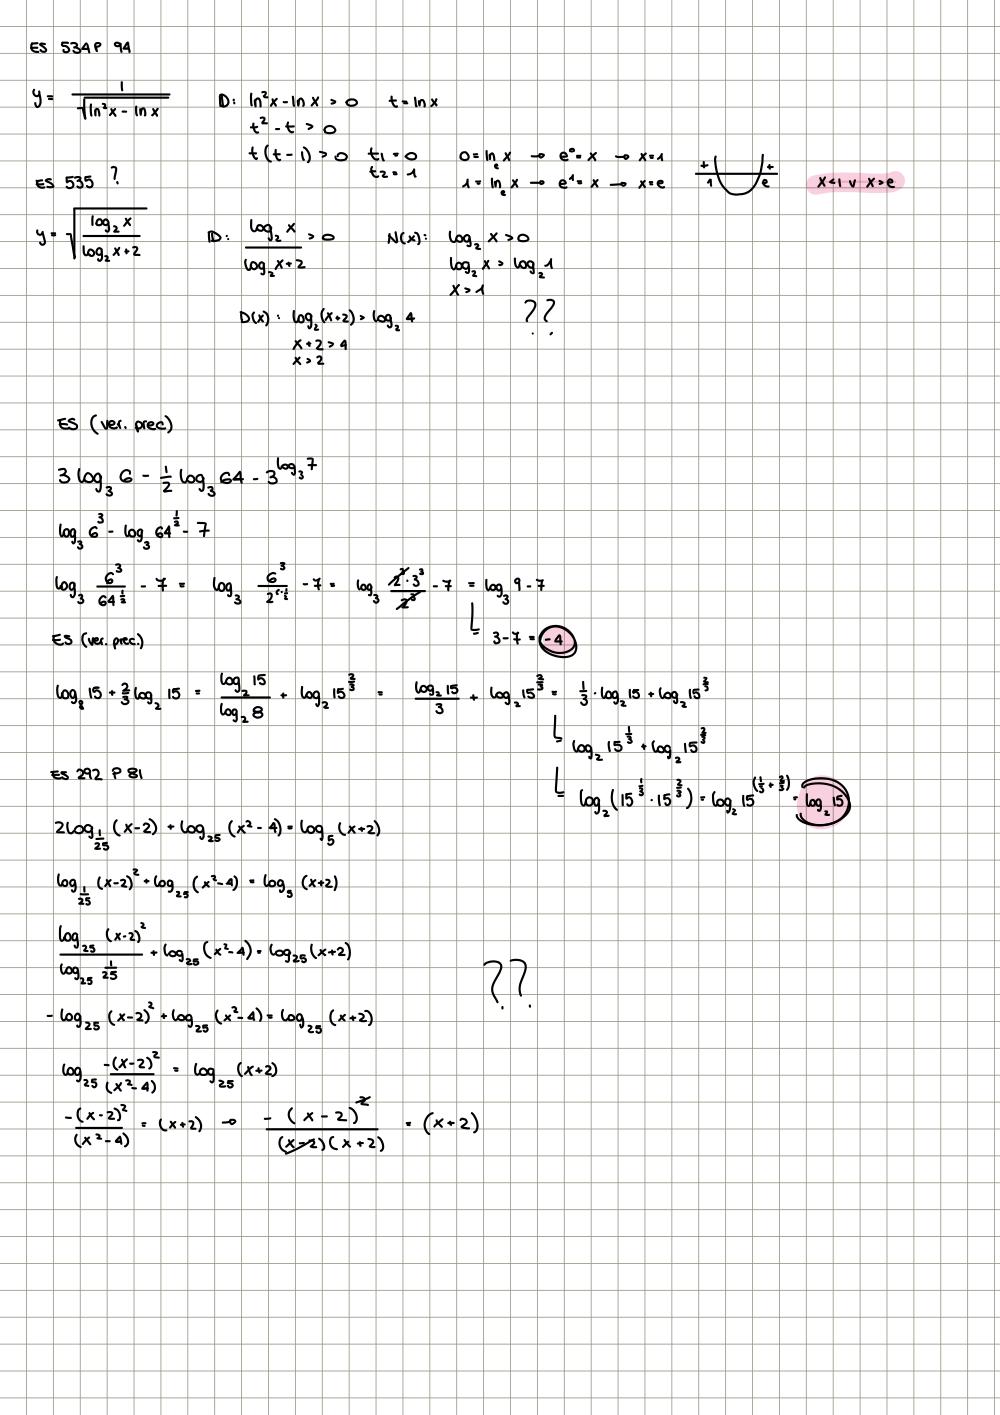 ES 534 P 94
y = 1/√(ln²x - ln x)   D: ln²x - ln x > 0   t = ln x
t² - t > 0
t(t-1) > 0   t₁ = 0   0 = lnₑ x → e⁰ = x → x=1
t₂ = 1   1 = lnₑ x → e¹ = x → x=e   + 1 e +   x<1 v x>e
ES 535 ?
y = √(log₂x / log₂x+2)   D: log₂x / log₂x+2 > 0   N(x): log₂ x > 0
log₂ x > log₂ 1
x > 1
D(x): log₂(x+2) > log₂ 4   ??
x+2 > 4
x > 2
ES (ver. prec)
3 log₃ 6 - 1/2 log₃ 64 - 3^(log₃7)
log₃ 6³ - log₃ 64^(1/2) - 7
log₃ 6³/64^(1/2) - 7 = log₃ 6³/2^(6·1/2) - 7 = log₃ 2³·3³/2³ - 7 = log₃ 9 - 7
3-7 = -4
ES (ver. prec.)
log₈ 15 + 2/3 log₂ 15 = log₂15/log₂8 + log₂15^(2/3) = log₂15/3 + log₂15^(2/3) = 1/3 · log₂15 + log₂15^(2/3)
log₂ 15^(1/3) + log₂ 15^(2/3)
log₂(15^(1/3) · 15^(2/3)) = log₂ 15^(1/3 + 2/3) = log₂ 15
ES 292 P 81
2log_(1/25) (x-2) + log₂₅ (x²-4) = log₅ (x+2)
log_(1/25) (x-2)² + log₂₅ (x²-4) = log₅ (x+2)
log₂₅ (x-2)² / log₂₅ 1/25 + log₂₅ (x²-4) = log₂₅ (x+2)
??
- log₂₅ (x-2)² + log₂₅ (x²-4) = log₂₅ (x+2)
log₂₅ -(x-2)²/(x²-4) = log₂₅ (x+2)
-(x-2)²/(x²-4) = (x+2) → -(x-2)²/(x-2)(x+2) = (x+2)